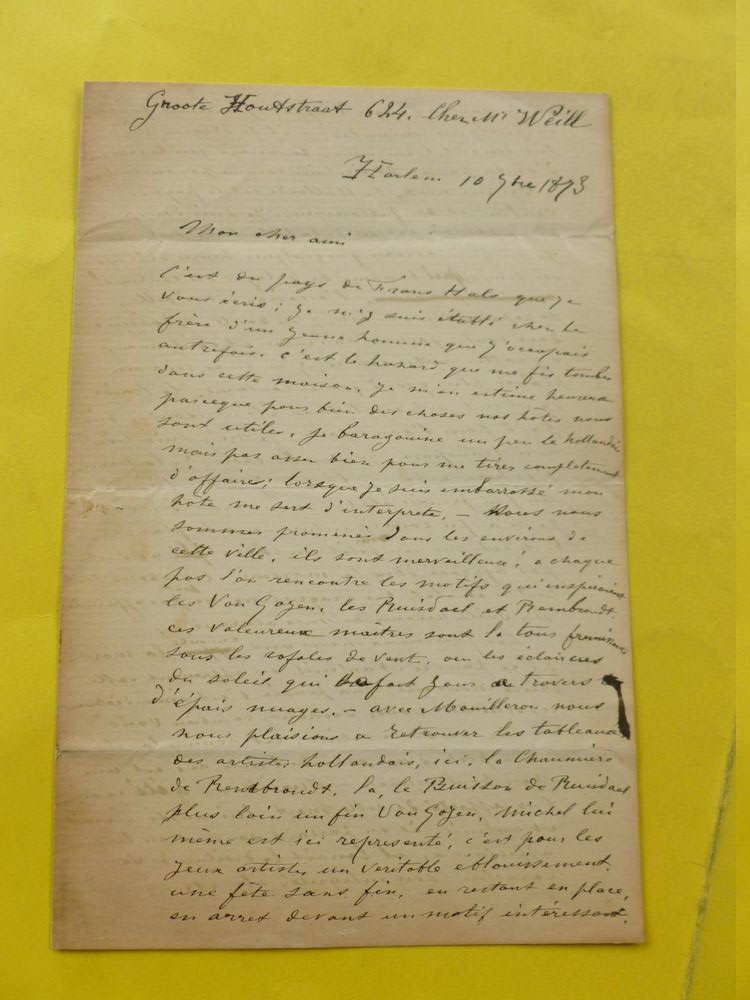 Groote Houtstraat 624. Chez Mr Weill
Harlem 10 9bre 1873
Mon cher ami
C'est du pays de Frans Hals que je
vous écris; je m'y suis établi chez le
frère d'un jeune homme que j'occupais
autrefois. c'est le hazard que me fis tomber
dans cette maison. je m'en estime heureux
parceque pour bien des choses nos hôtes nous
sont utiles. je baragouine un peu le hollandais
mais pas assez bien pour me tirer completement
d'affaire; lorsque je suis embarrassé mon
hôte me sert d'interprete. — Nous nous
sommes promenés dans les environs de
cette ville, ils sont merveilleux; a chaque
pas l'on rencontre les motifs qui inspiraient
les Van Goyen, les Ruisdael et Rembrandt.
ces valeureux maîtres sont la tous fremissants
sous les rafales de vent, ou les éclaircies
du soleil qui se fait jour a travers
d'épais nuages. — avec Mouilleron nous
nous plaisions a retrouver les tableaux
des artistes hollandais, ici, la Chaumière
de Rembrandt, la, le Buisson de Ruisdael
plus loin un fin Van Goyen, Michel lui
même est ici representé, c'est pour les
yeux artistes un veritable éblouissement.
une fête sans fin, en restant en place,
en arret devant un motif intéressant.